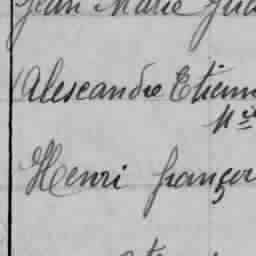 Jean Marie
Alescandre Etienn
Henri françoi